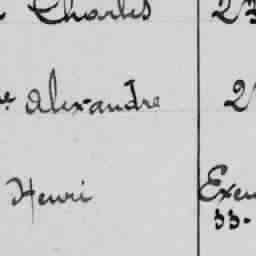 Charles
Alexandre 2
Henri Exem
33.